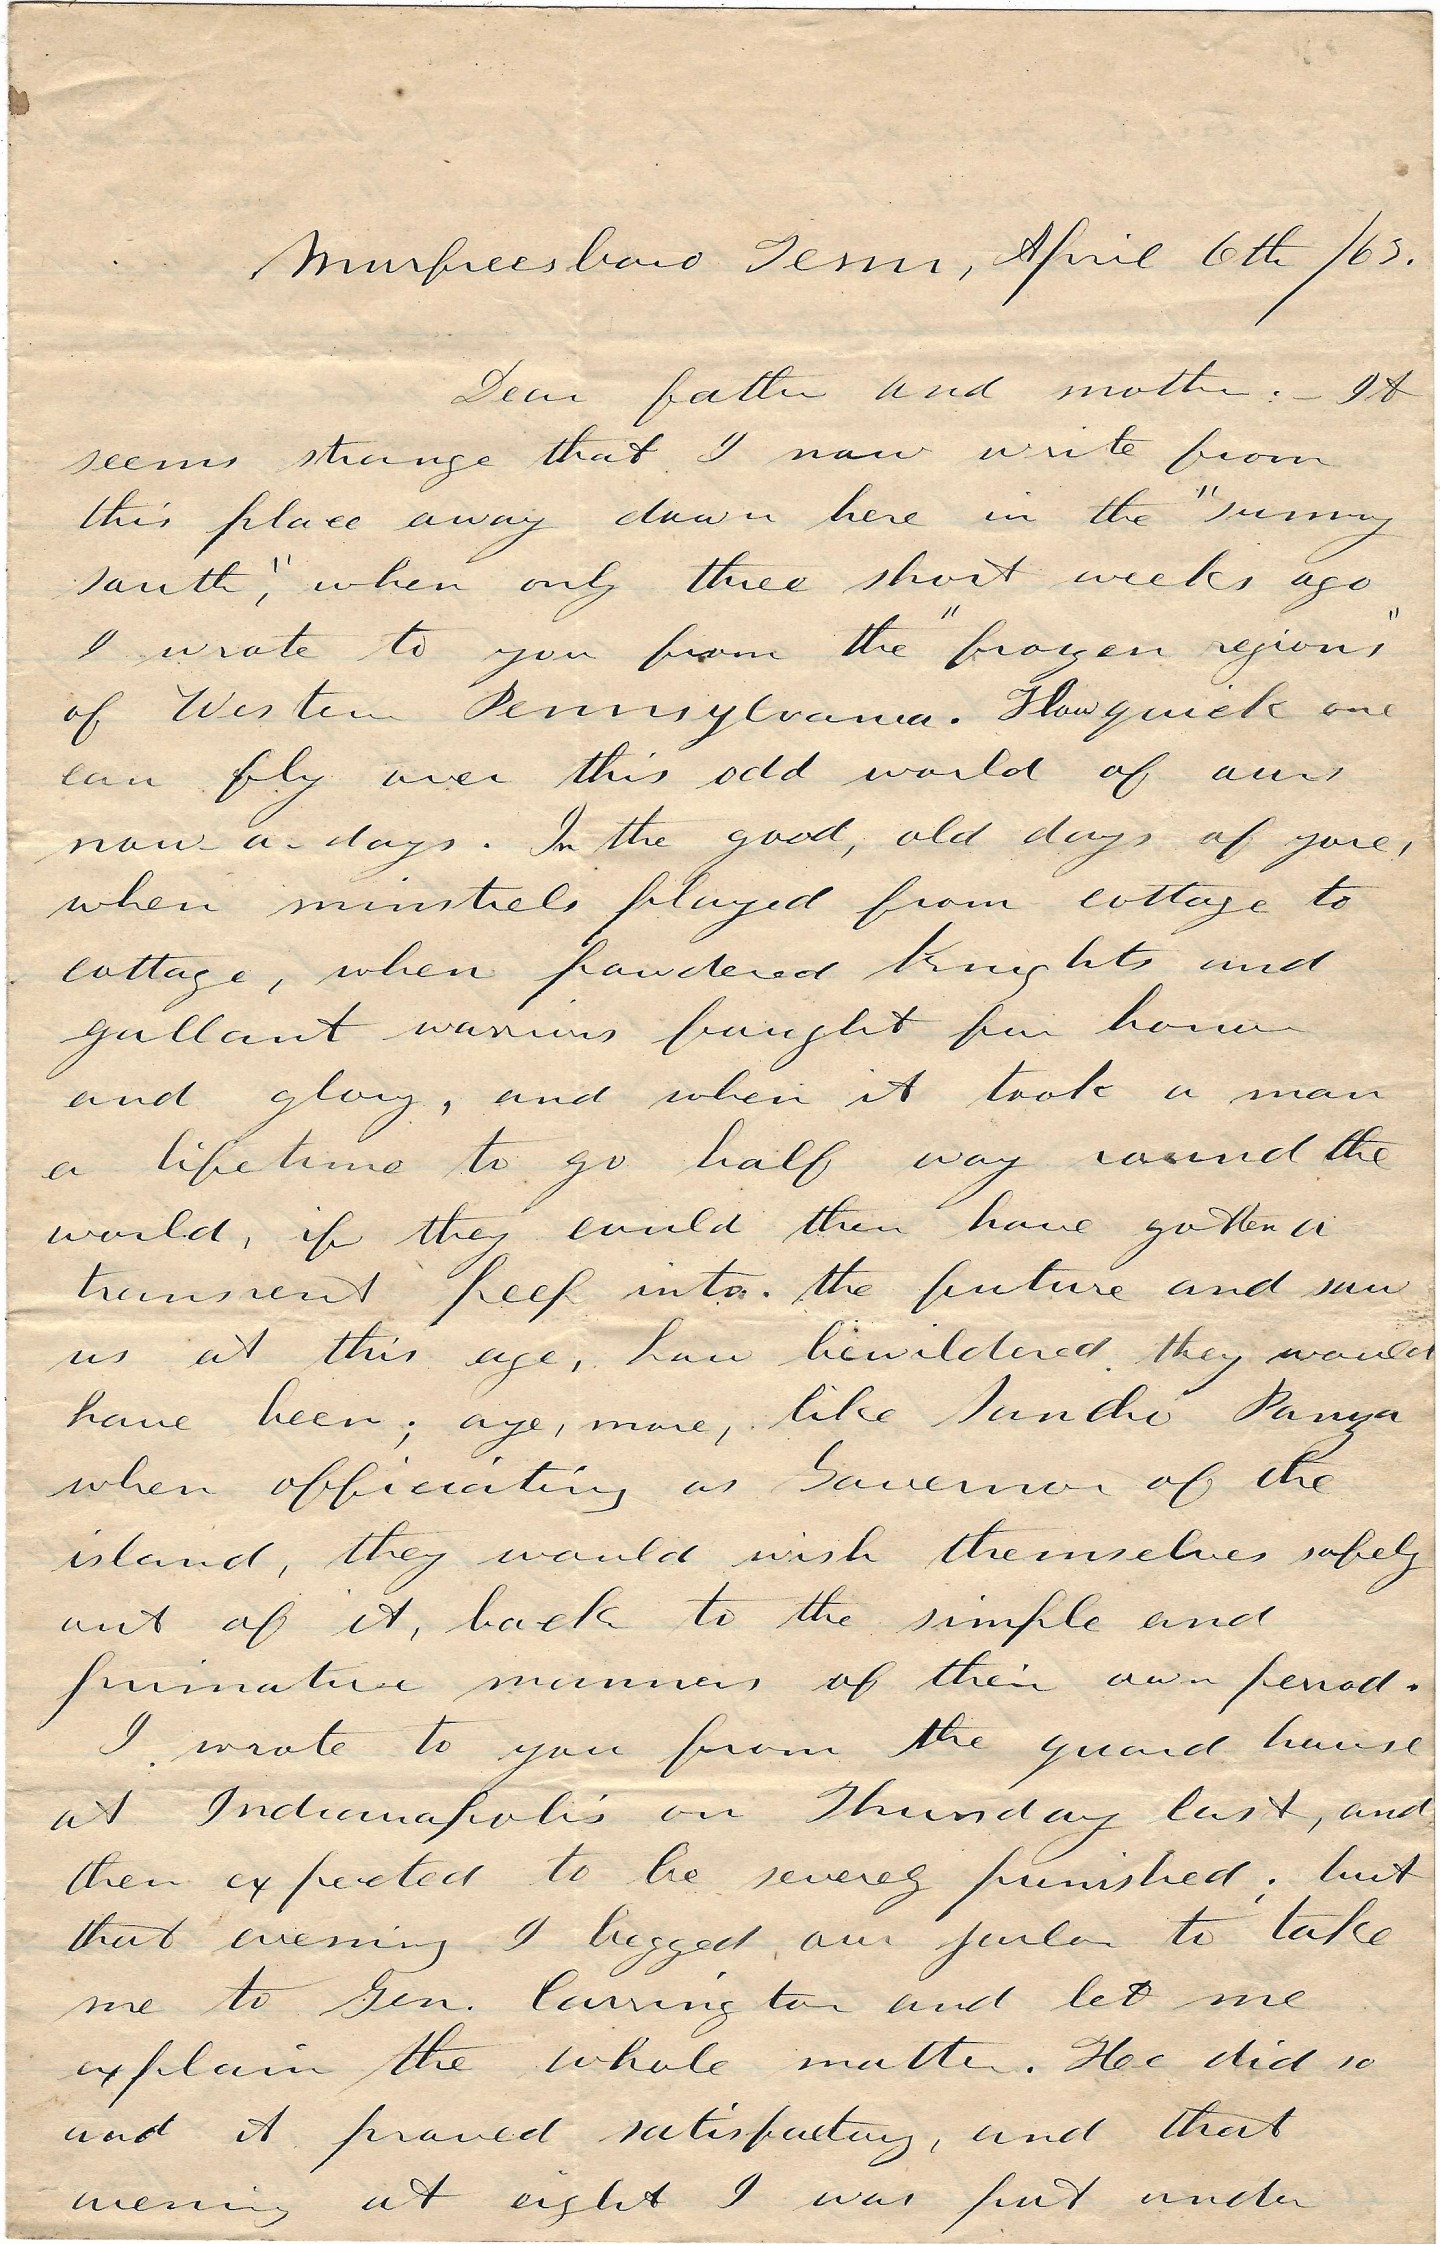 Murfreesboro Tenn, April 6th /63.
Dear father and mother:- It
seems strange that I now write from
this place away down here in the "sunny
south", when only three short weeks ago
I wrote to you from the "frozen regions"
of Western Pennsylvania. How quick one
can fly over this odd world of ours
now-a-days. In the good, old days of yore,
when minstrels played from cottage to
cottage, when powdered Knights and
gallant warriors fought for honor
and glory, and when it took a man
a lifetime to go half way round the
world, if they could then have gotten a
transient peep into the future and saw
us at this age, how bewildered they would
have been; aye, more, like Sancho Panza
when officiating as Governor of the
island, they would wish themselves safely
out of it, back to the simple and
primative manners of their own period.
I wrote to you from the guard house
at Indianapolis on Thursday last, and
then expected to be severely punished; but
that evening I begged our jailor to take
me to Gen. Carrington and let me
explain the whole matter. Hee did so
and it proved satisfactory, and that
evening at eight I was put under